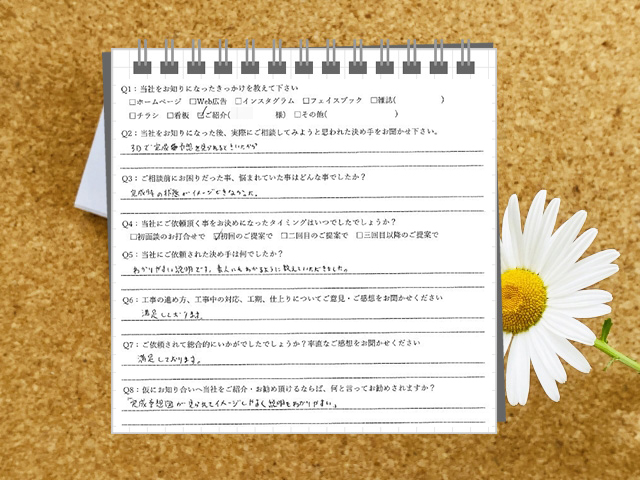 Q1：当社をお知りになったきっかけを教えて下さい
□ホームページ □Web広告 □インスタグラム □フェイスブック □雑誌( )
□チラシ □看板 ☑ご紹介( 様) □その他( )
Q2：当社をお知りになった後、実際にご相談してみようと思われた決め手をお聞かせ下さい。
3Dで完成予想を見られるときいたから
Q3：ご相談前にお困りだった事、悩まれていた事はどんな事でしたか？
完成時の状態がイメージできなかった。
Q4：当社にご依頼頂く事をお決めになったタイミングはいつでしたでしょうか？
□初面談のお打合せで ☑初回のご提案で □二回目のご提案で □三回目以降のご提案で
Q5：当社にご依頼された決め手は何でしたか？
わかりやすい説明です。素人にもわかるように教えていただきました。
Q6：工事の進め方、工事中の対応、工期、仕上りについてご意見・ご感想をお聞かせください
満足しております。
Q7：ご依頼されて総合的にいかがでしたでしょうか？率直なご感想をお聞かせください
満足しております。
Q8：仮にお知り合いへ当社をご紹介・お勧め頂けるならば、何と言ってお勧めされますか？
「完成予想図が見られてイメージしやすく説明もわかりやすい」